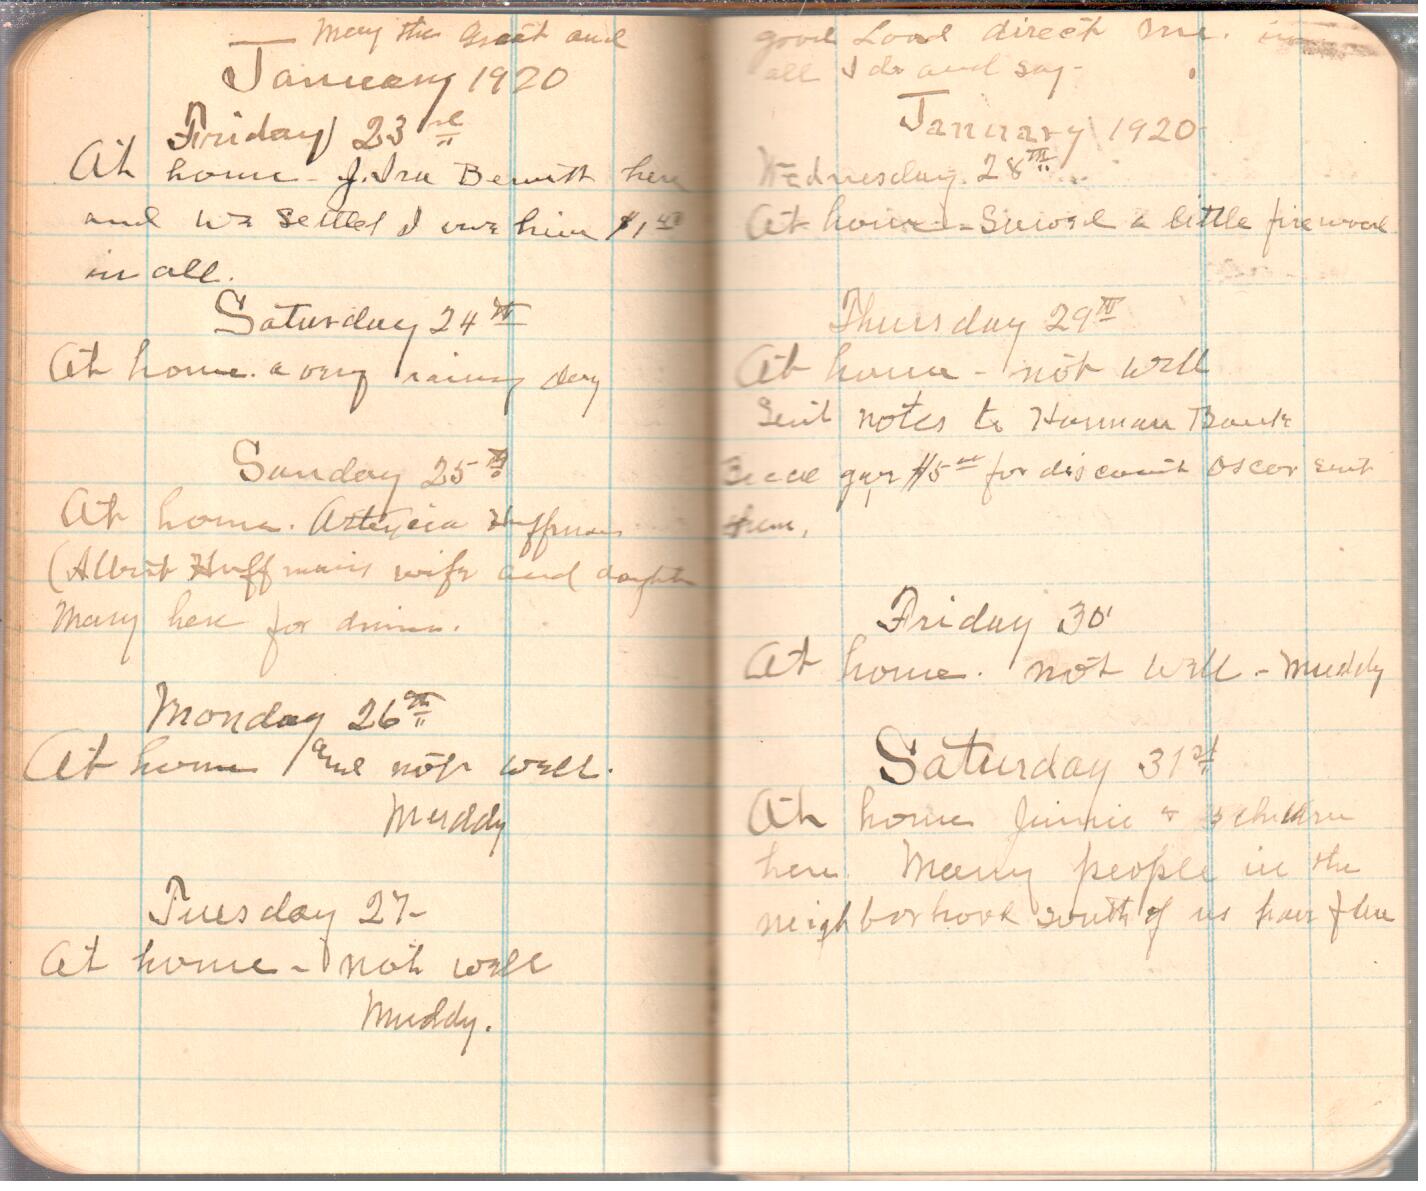 May the Great and
January 1920
Friday 23rd
At home - J. Ira here
and we settled I owe him $1.40
in all.
Saturday 24th
At home. a very rainy day
Sunday 25th
At home. Huffman
(Albert Huffmans wife and daughter
Mary here for dinner.
Monday 26th
At home and not well.
Muddy
Tuesday 27-
At home - not well
Muddy.
good Lord direct me. in
all I do and say-
January 1920
Wednesday. 28th
At home - Sawed a little firewood
Thursday 29th
At home - not well
Sent notes to Harman Bank
$5.00 for discount Oscar sent
them.
Friday 30
At home. not well - Muddy
Saturday 31st
At home Jimmie & 3 children
here. Many people in the
neighborhood south of us have flue